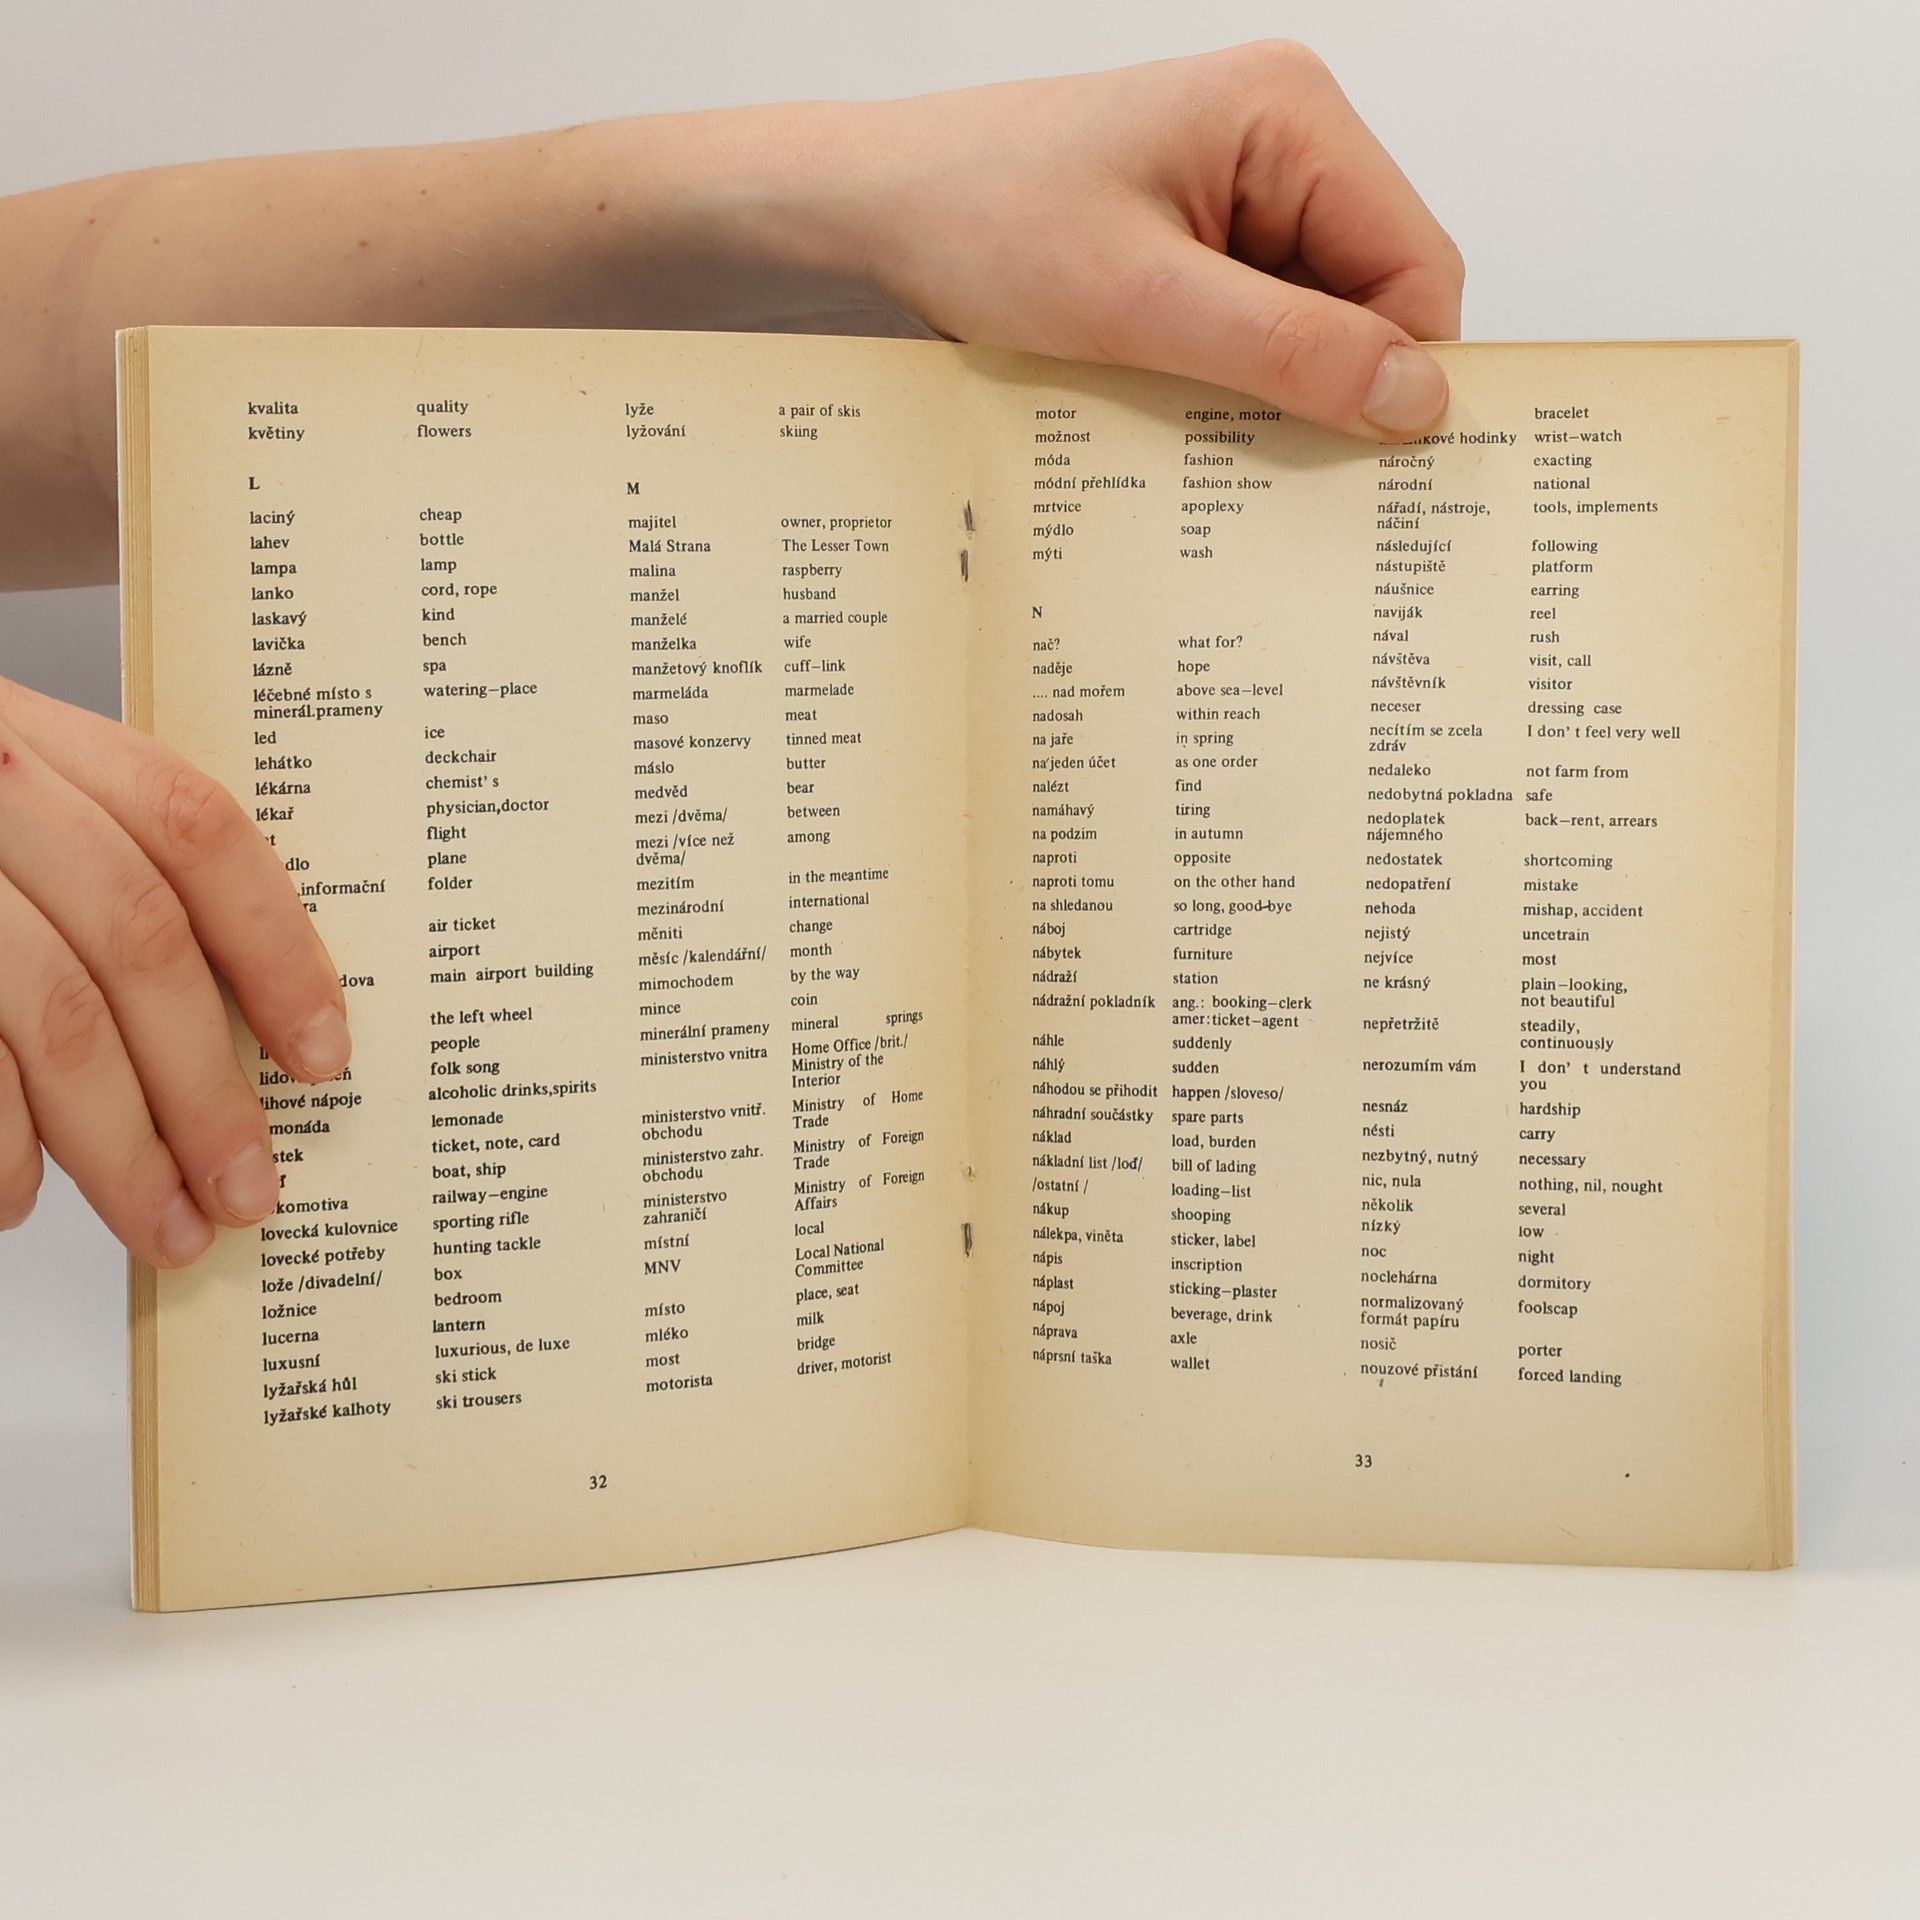 kvalita quality
květiny flowers
L
laciný cheap
lahev bottle
lampa lamp
lanko cord, rope
laskavý kind
lavička bench
lázně spa
léčebné místo s watering—place
minerál.prameny
led ice
lehátko deckchair
lékárna chemist' s
lékař physician,doctor
flight
plane
informační folder
air ticket
airport
main airport building
the left wheel
people
folk song
lihové nápoje alcoholic drinks,spirits
lemonade
ticket, note, card
boat, ship
railway—engine
lovecká kulovnice sporting rifle
lovecké potřeby hunting tackle
lože /divadelní/ box
ložnice bedroom
lucerna lantern
luxusní luxurious, de luxe
lyžařská hůl ski stick
lyžařské kalhoty ski trousers
lyže a pair of skis
lyžování skiing
M
majitel owner, proprietor
Malá Strana The Lesser Town
malina raspberry
manžel husband
manželé a married couple
manželka wife
manžetový knoflík cuff—link
marmeláda marmelade
maso meat
masové konzervy tinned meat
máslo butter
medvěd bear
mezi /dvěma/ between
mezi /více než among
dvěma/
mezitím in the meantime
mezinárodní international
měniti change
měsíc /kalendářní/ month
mimochodem by the way
mince coin
minerální prameny mineral springs
ministerstvo vnitra Home Office /brit./
Ministry of the
Interior
ministerstvo vnitř. Ministry of Home
obchodu Trade
ministerstvo zahr. Ministry of Foreign
obchodu Trade
ministerstvo Ministry of Foreign
zahraničí Affairs
místní local
MNV Local National
Committee
místo place, seat
mléko milk
most bridge
motorista driver, motorist
32
motor engine, motor
možnost possibility
móda fashion
módní přehlídka fashion show
mrtvice apoplexy
mýdlo soap
mýti wash
N
nač? what for?
naděje hope
.... nad mořem above sea—level
nadosah within reach
na jaře in spring
na jeden účet as one order
nalézt find
namáhavý tiring
na podzim in autumn
naproti opposite
naproti tomu on the other hand
na shledanou so long, good-bye
náboj cartridge
nábytek furniture
nádraží station
nádražní pokladník ang.: booking—clerk
amer:ticket—agent
náhle suddenly
náhlý sudden
náhodou se přihodit happen /sloveso/
náhradní součástky spare parts
náklad load, burden
nákladní list /loď/ bill of lading
/ostatní / loading—list
nákup shooping
nálekpa, viněta sticker, label
nápis inscription
náplast sticking—plaster
nápoj beverage, drink
náprava axle
náprsní taška wallet
bracelet
hodinky wrist—watch
náročný exacting
národní national
nářadí, nástroje, tools, implements
náčiní
následující following
nástupiště platform
náušnice earring
naviják reel
nával rush
návštěva visit, call
návštěvník visitor
neceser dressing case
necítím se zcela I don' t feel very well
zdráv
nedaleko not farm from
nedobytná pokladna safe
nedoplatek back—rent, arrears
nájemného
nedostatek shortcoming
nedopatření mistake
nehoda mishap, accident
nejistý uncetrain
nejvíce most
ne krásný plain—looking,
not beautiful
nepřetržitě steadily,
continuously
nerozumím vám I don' t understand
you
nesnáz hardship
nésti carry
nezbytný, nutný necessary
nic, nula nothing, nil, nought
několik several
nízký low
noc night
noclehárna dormitory
normalizovaný foolscap
formát papíru
nosič porter
nouzové přistání forced landing
33